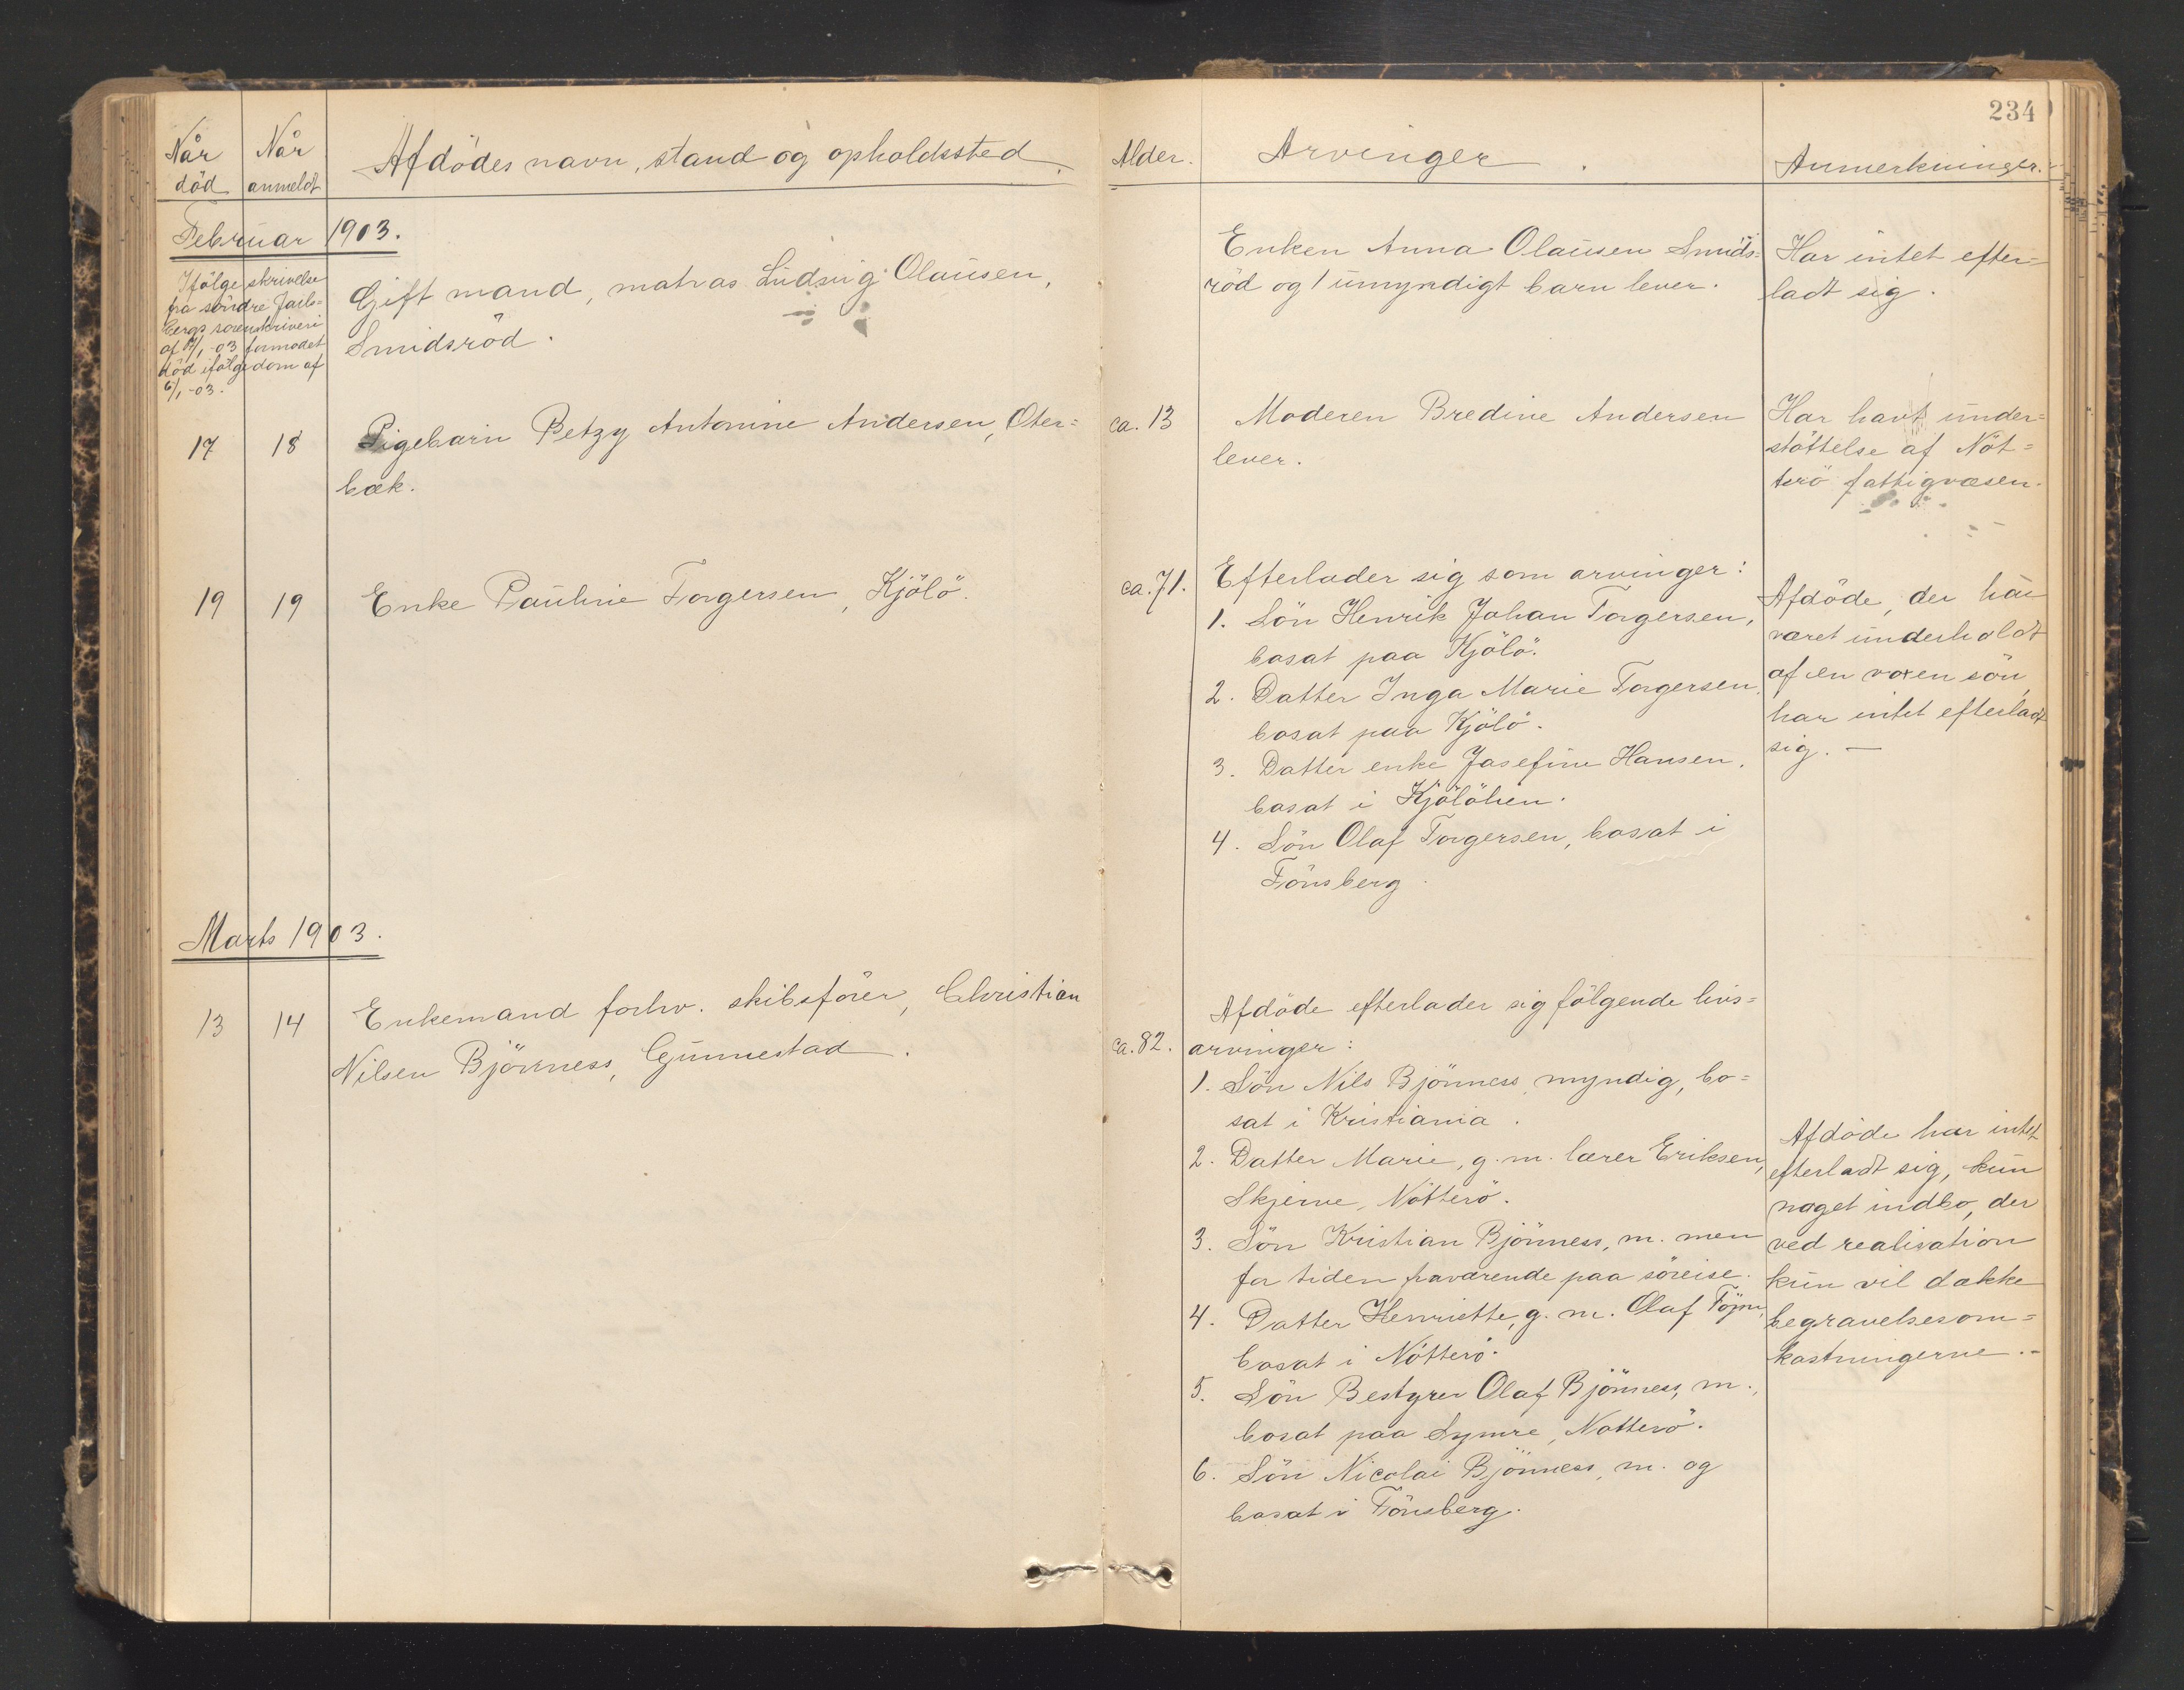 234
Når død
Når anmeldt
Afdödes navn, stand og opholdssted.
Alder.
Arvinger.
Anmerkninger.
Februar 1903.
Ifölge skrivelse
fra söndre Jarls=
bergs sorenskriveri
af 17/1 -03 formodet
död ifölge dom af
6/1 -03.
Gift mand, matros Ludvig Olausen,
Smidsröd.
Enken Anna Olausen Smids=
röd og 1 umyndigt barn lever.
Har intet efter=
ladt sig.
17
18
Pigebarn Betzy Antonine Andersen, Oter=
bæk.
ca. 13
Moderen Bredine Andersen
lever.
Har havt under=
stöttelse af Nöt=
terö fattigvæsen.
19
19
Enke Pauline Torgersen, Kjölö.
ca. 71.
Efterlader sig som arvinger:
1. Sön Henrik Johan Torgersen,
bosat paa Kjölö.
2. Datter Inga Marie Torgersen,
bosat paa Kjölö.
3. Datter enke Josefine Hansen,
bosat i Kjölöhien.
4. Sön Olaf Torgersen, bosat i
Tönsberg.
Afdöde, der har
været underholdt
af en voxen sön,
har intet efterladt
sig. —
Marts 1903.
13
14
Enkemand forhv. skibsförer, Christian
Nilsen Björnness, Gunnestad.
ca. 82.
Afdöde efterlader sig fölgende livs=
arvinger:
1. Sön Nils Bjönness, myndig, bo=
sat i Kristiania.
2. Datter Marie, g. m. lærer Eriksen,
Skjerve, Nötterö.
3. Sön Kristian Bjönness, m. men
for tiden fraværende paa söreise.
4. Datter Henriette, g. m. Olaf Föjn,
bosat i Nötterö.
5. Sön Bestyrer Olaf Bjönness, m.,
bosat paa Symre, Nötterö.
6. Sön Nicolai Bjönness, m. og
bosat i Tönsberg.
Afdöde har intet
efterladt sig, kun
noget indbo, der
ved realisation
kun vil dække
begravelsesom=
kostningerne.-